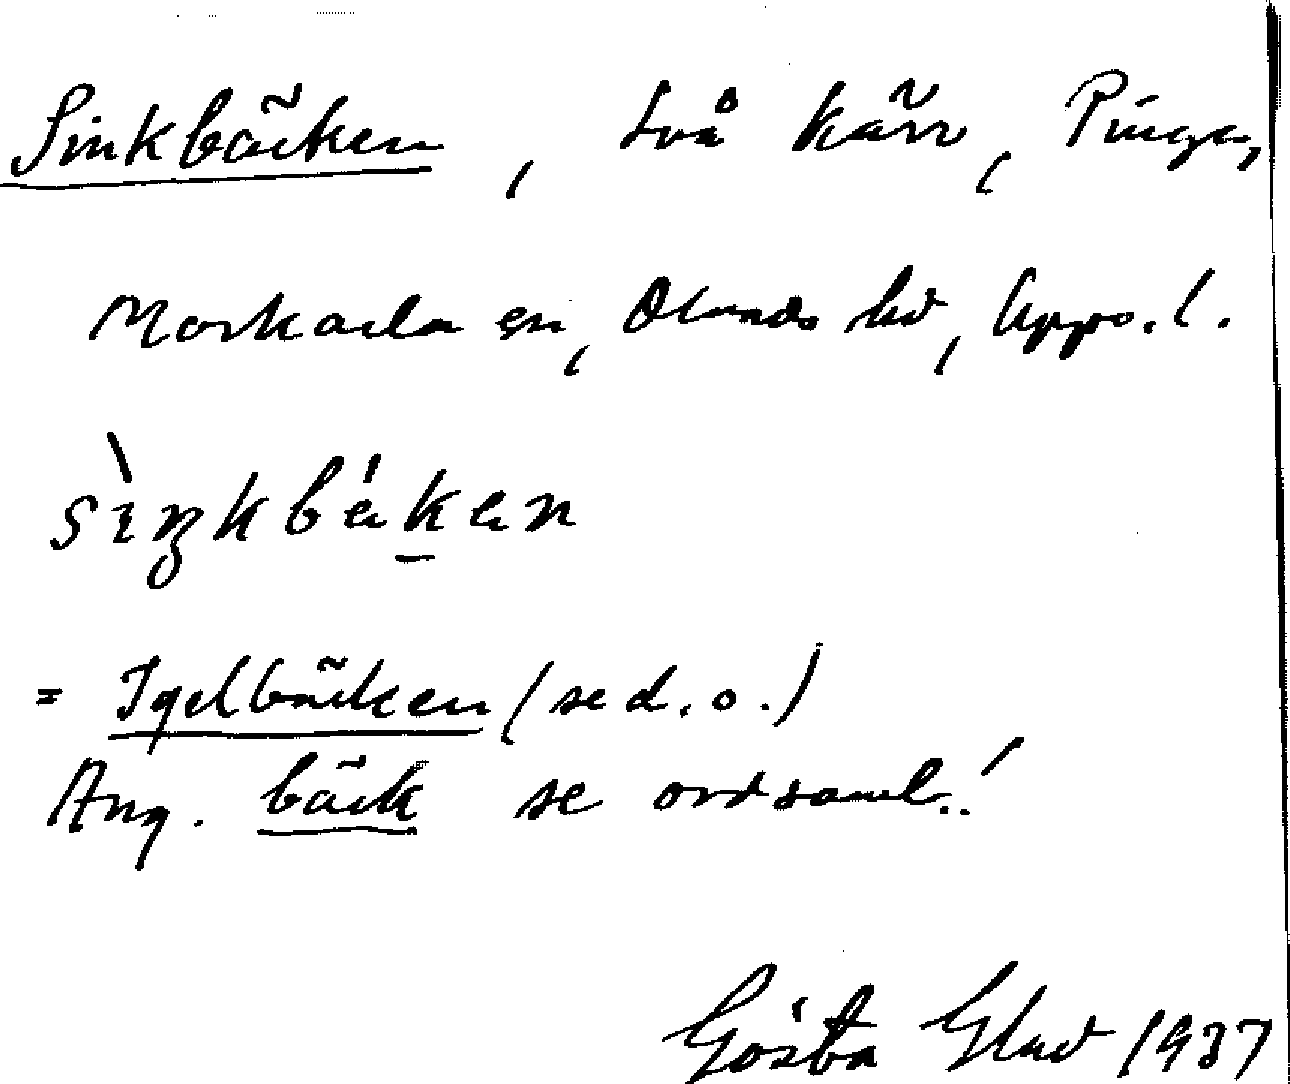 Sinkbäcken, två kärr, Pinge,
Morkarla sn, Olands hd, Upps. l.
sìŋkbäkən
= Igelbäcken (se d. o.)
Ang. bäck se ordsaml.!
Gösta Glad 1937